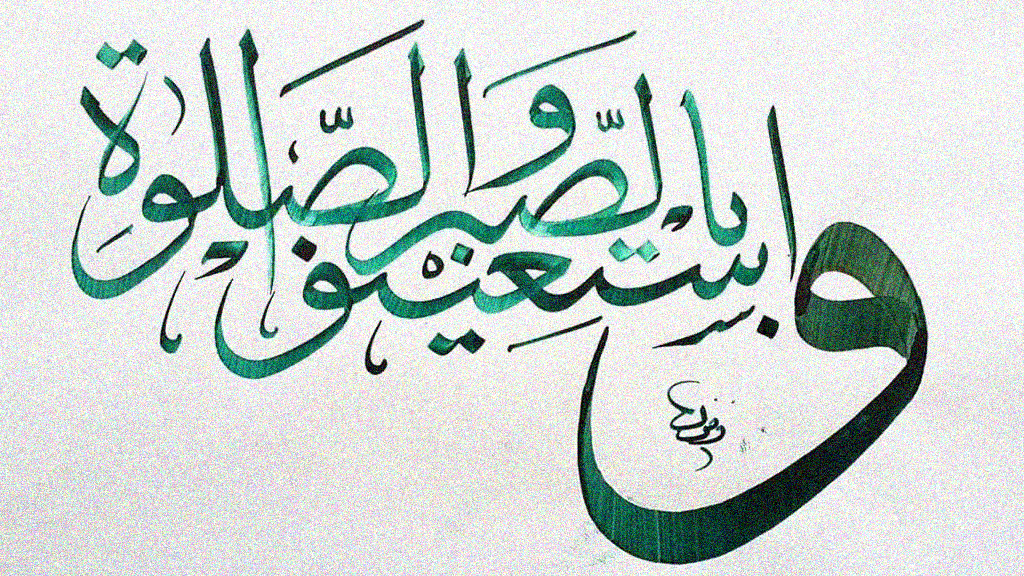 واستعينوا بالصبر والصلوة